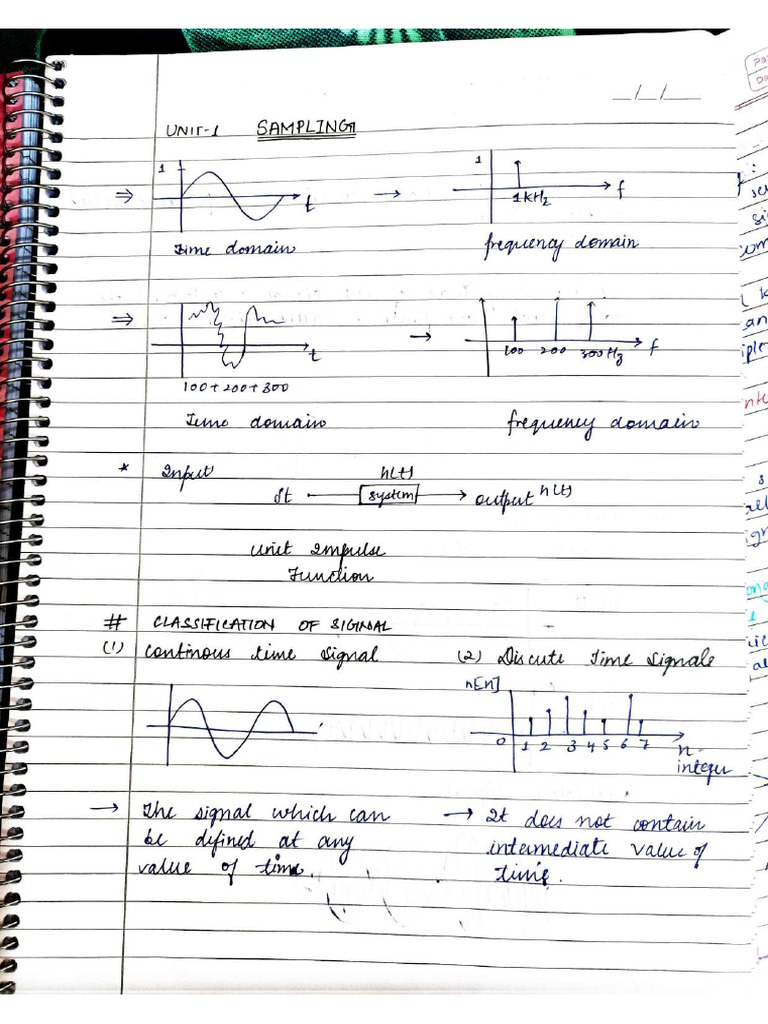 __/__/__
UNIT-1 SAMPLING
⇒ 1 t → 1 1 kHz f
Time domain frequency domain
⇒ t → 100 200 300Hz f
100+200+300
Time domain frequency domain
* Input h(t)
δt system output h(t)
unit Impulse
Function
# CLASSIFICATION OF SIGNAL
(1) continous time signal (2) Discute Time Signals
n[n]
0 1 2 3 4 5 6 7 n
integer
→ The signal which can → It does not contain
be defined at any intermediate value of
value of time. time.